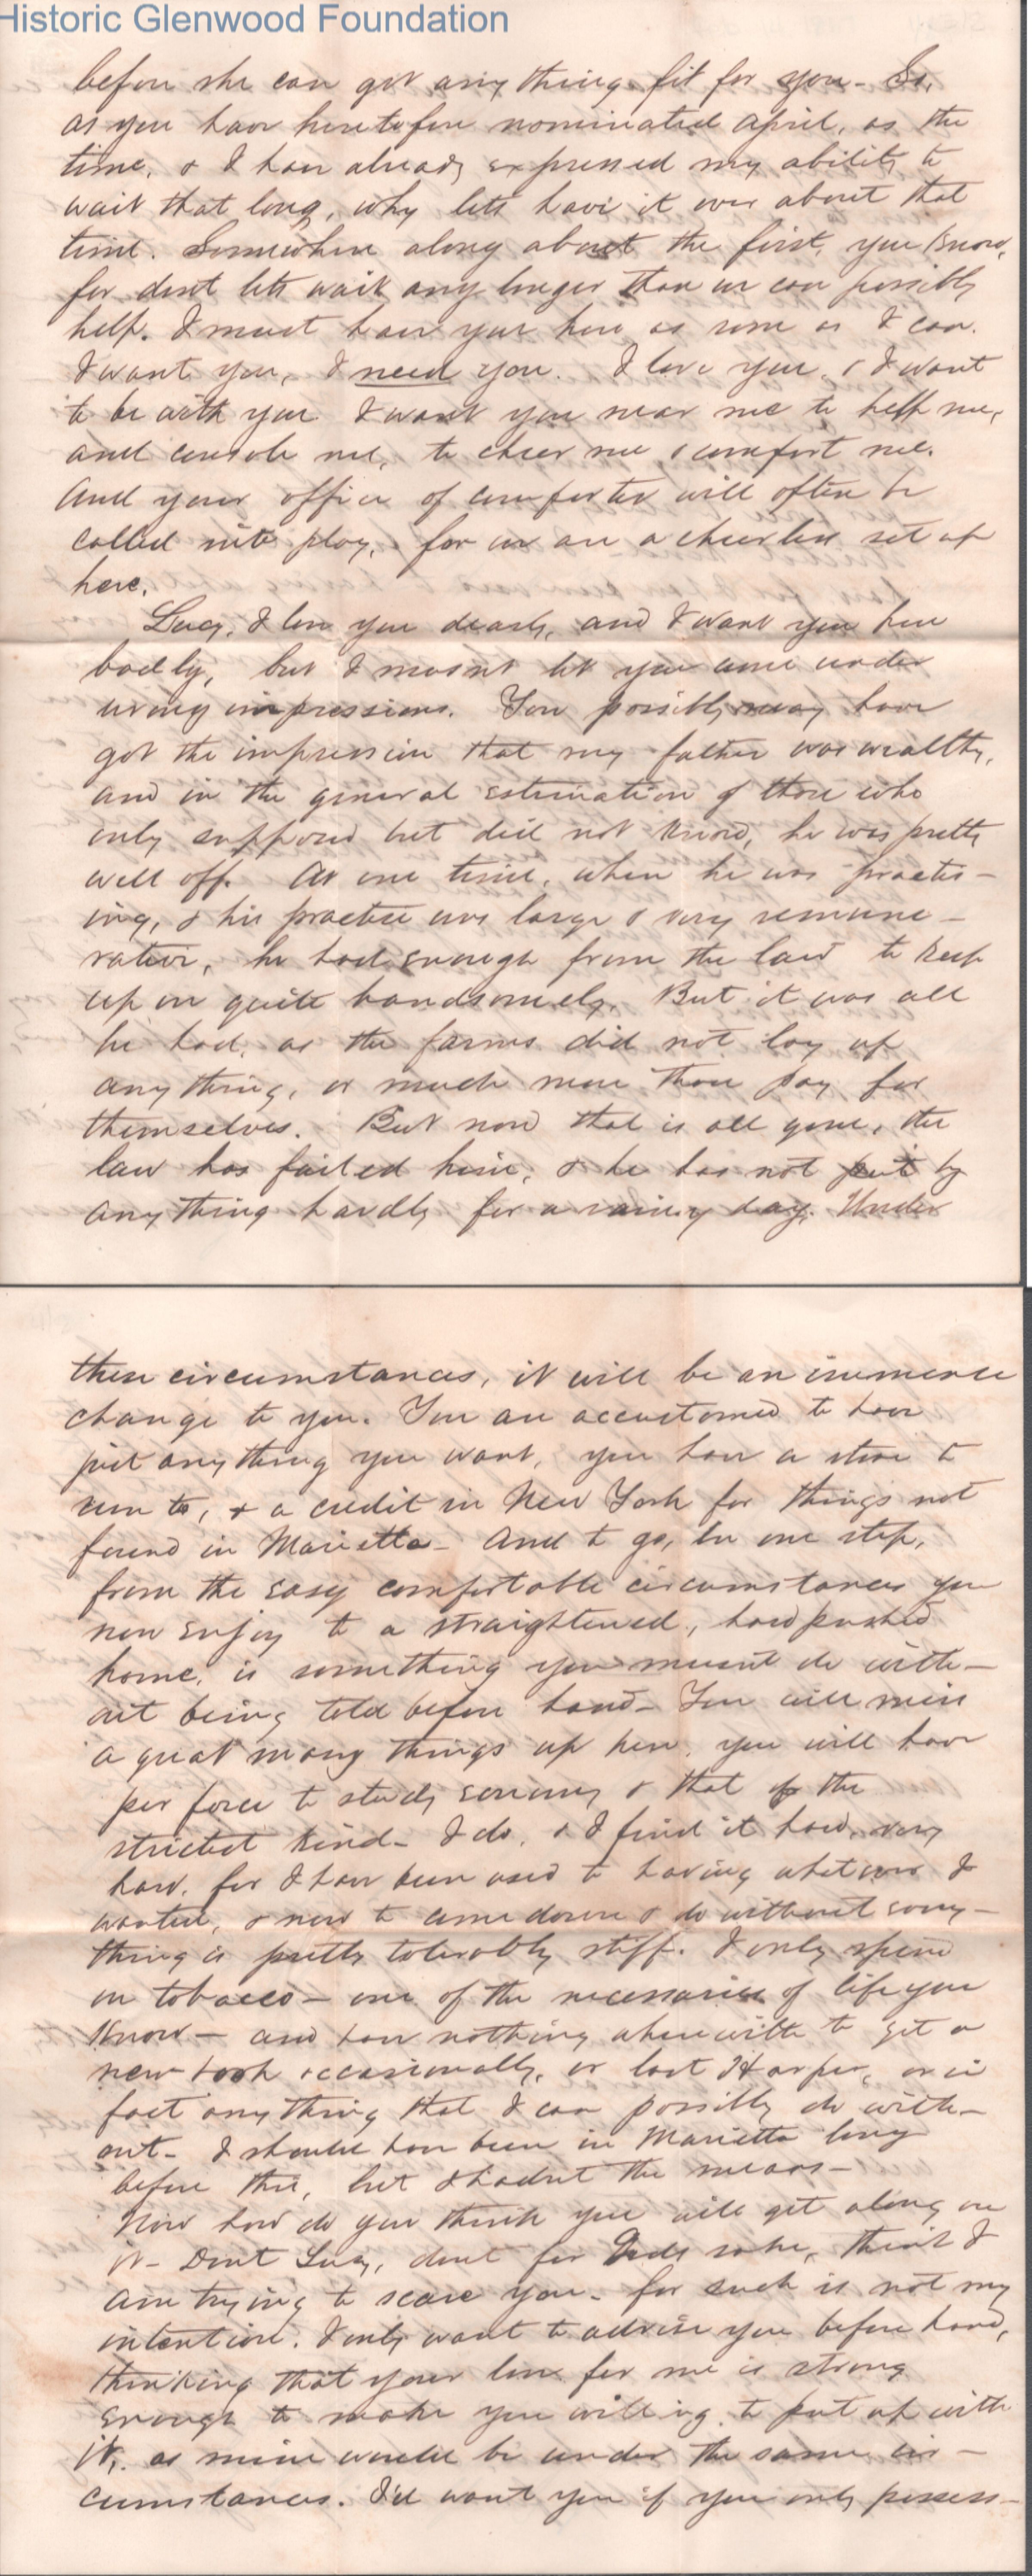 Historic Glenwood Foundation
before she can get any thing fit for you - So,
as you have heretofore nominated April, as the
time, & I have already expressed my ability to
wait that long, why lets have it over about that
time. Somewhere along about the first, you know,
for dont lets wait any longer than we can possibly
help. I must have you here as soon as I can.
I want you, I need you. I love you, & I want
to be with you I want you near me to help me,
and console me, to cheer me & comfort me.
And your office of comforter will often be
called into play, for we are a cheerless set up
here.
Lucy, I love you dearly, and I want you here
badly, but I mustnt let you come under
wrong impressions. You possibly may have
got the impression that my father was wealthy,
and in the general estimation of those who
only supposed but did not know, he was pretty
well off. At one time, when he was practis-
ing, & his practice was large & very remune-
rative, he had enough from the law to keep
up on quite handsomely. But it was all
he had, as the farms did not lay up
any thing, or much more than pay for
themselves. But now that is all gone, the
law has failed him, & he has not put by
any thing hardly for a rainy day. Under
these circumstances, it will be an immense
change to you. You are accustomed to have
just any thing you want, you have a store to
run to, & a credit in New York for things not
found in Marietta - And to go, by one step,
from the easy comfortable circumstances you
now enjoy to a straightened, hard pushed
home, is something you mussnt do with-
out being told before hand - You will miss
a great many things up here, you will have
per force to study economy & that of the
strictest kind - I do, & I find it hard, very
hard, for I have been used to having whatever I
wanted, & now to come down & do without every-
thing is pretty tolerably stiff. I only spend
on tobacco - one of the necessaries of life you
know - and have nothing wherewith to get a
new book occasionally, or last Harper, or in
fact any thing that I can possibly do with-
out - I should have been in Marietta long
before this, but I hadnt the means -
Now how do you think you will get along on
it - Dont Lucy, dont for Gods sake, think I
am trying to scare you - for such is not my
intention. I only want to advise you before hand,
thinking that your love for me is strong
enough to make you willing to put up with
it, as mine would be under the same cir-
cumstances. I'd want you if you only possess-